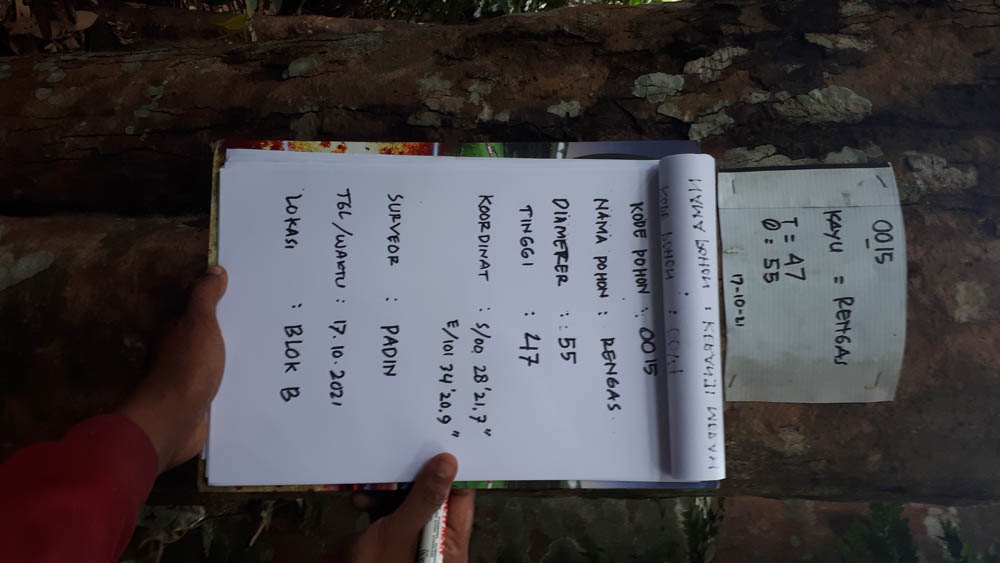 0015
KAYU = RENGAS
T = 47
Ø = 55
17-10-21
NAMA POHON :
KODE POHON :
KODE POHON : 0015
NAMA POHON : RENGAS
DIAMERER : : 55
TINGGI : 47
KOORDINAT : S/00 28'21,7"
E/101 34'20.9"
SURVEOR : PADIN
TGL/WAKTU : 17.10.2021
LOKASI : BLOK B